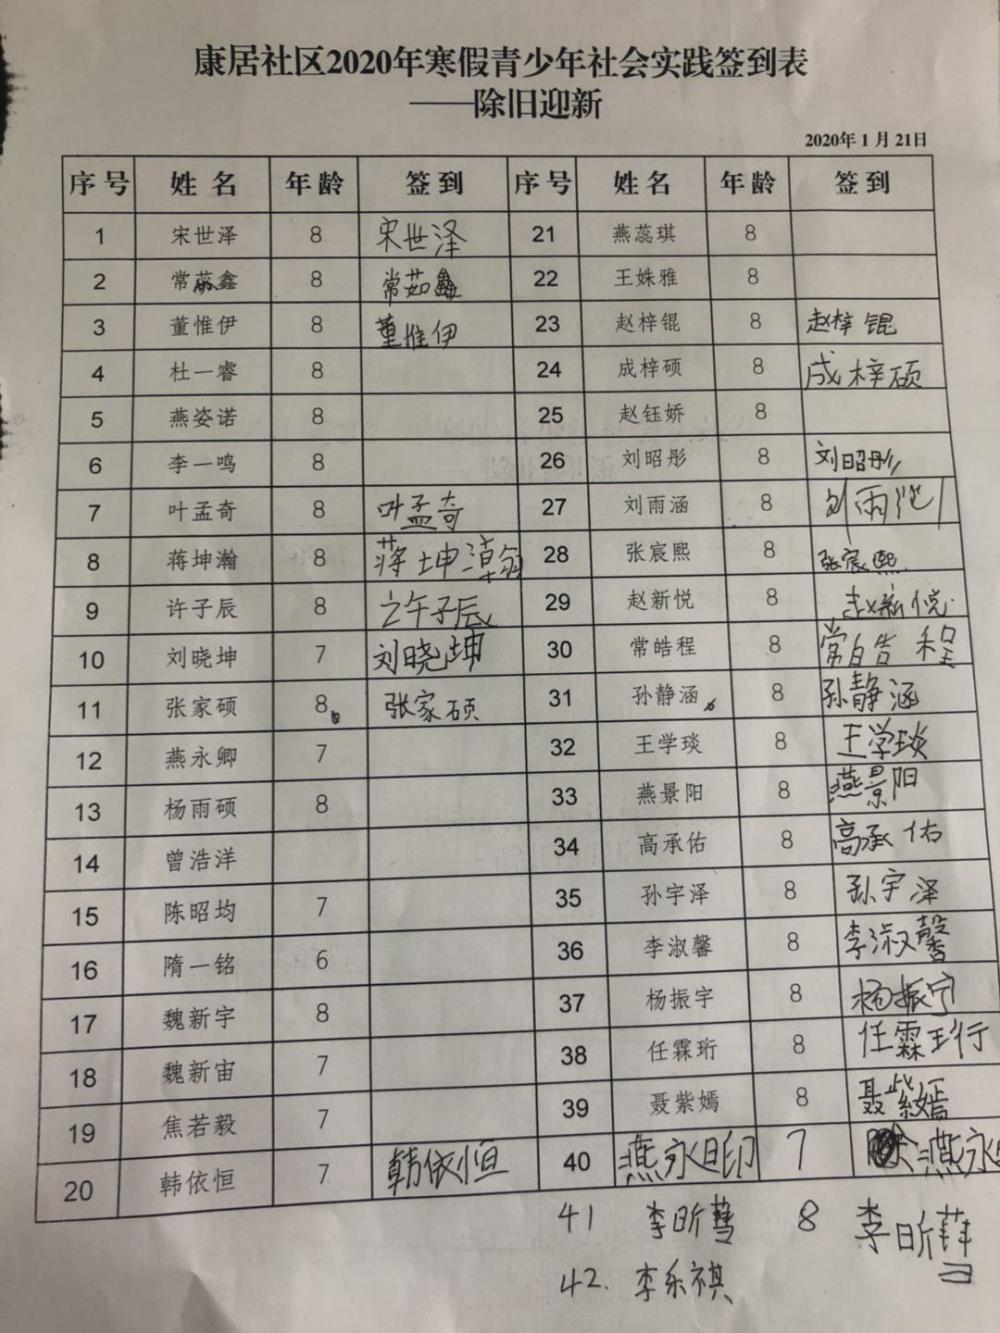 康居社区2020年寒假青少年社会实践签到表
——除旧迎新
2020年1月21日
序号 姓名 年龄 签到 序号 姓名 年龄 签到
1 宋世泽 8 宋世泽 21 燕蕊琪 8
2 常茹鑫 8 常茹鑫 22 王姝雅 8
3 董惟伊 8 董惟伊 23 赵梓锟 8 赵梓锟
4 杜一睿 8 24 成梓硕 8 成梓硕
5 燕姿诺 8 25 赵钰娇 8
6 李一鸣 8 26 刘昭彤 8 刘昭彤
7 叶孟奇 8 叶孟奇 27 刘雨涵 8 刘雨
8 蒋坤瀚 8 蒋坤瀚 28 张宸熙 8 张宸熙
9 许子辰 8 许子辰 29 赵新悦 8 赵新悦
10 刘晓坤 7 刘晓坤 30 常皓程 8 常皓程
11 张家硕 8 张家硕 31 孙静涵 8 孙静涵
12 燕永卿 7 32 王学琰 8 王学琰
13 杨雨硕 8 33 燕景阳 8 燕景阳
14 曾浩洋 34 高承佑 8 高承佑
15 陈昭均 7 35 孙宇泽 8 孙宇泽
16 隋一铭 6 36 李淑馨 8 李淑馨
17 魏新宇 8 37 杨振宇 8 杨振宇
18 魏新宙 7 38 任霖珩 8 任霖珩
19 焦若毅 7 39 聂紫嫣 8 聂紫嫣
20 韩依恒 7 韩依恒 40 燕永 7 燕永
41 李昕 8 李昕
42. 李乐祺